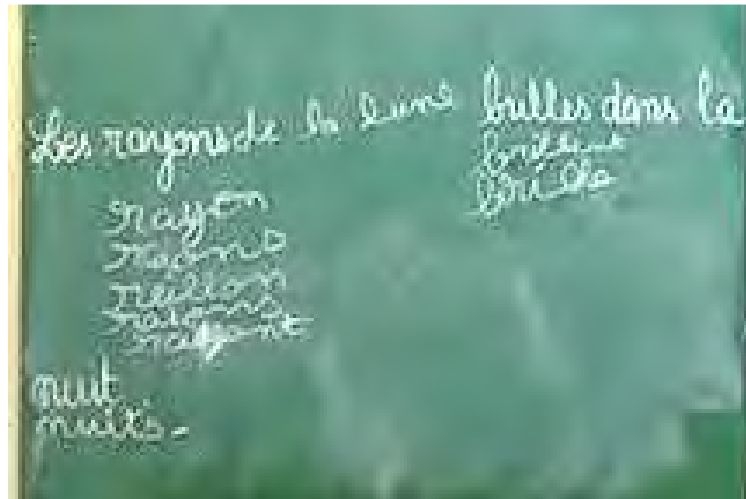 Les rayons de la lune brilles dans la
brillent
brille
rayyon
reion
raisons
rayont
nuit
nuits.